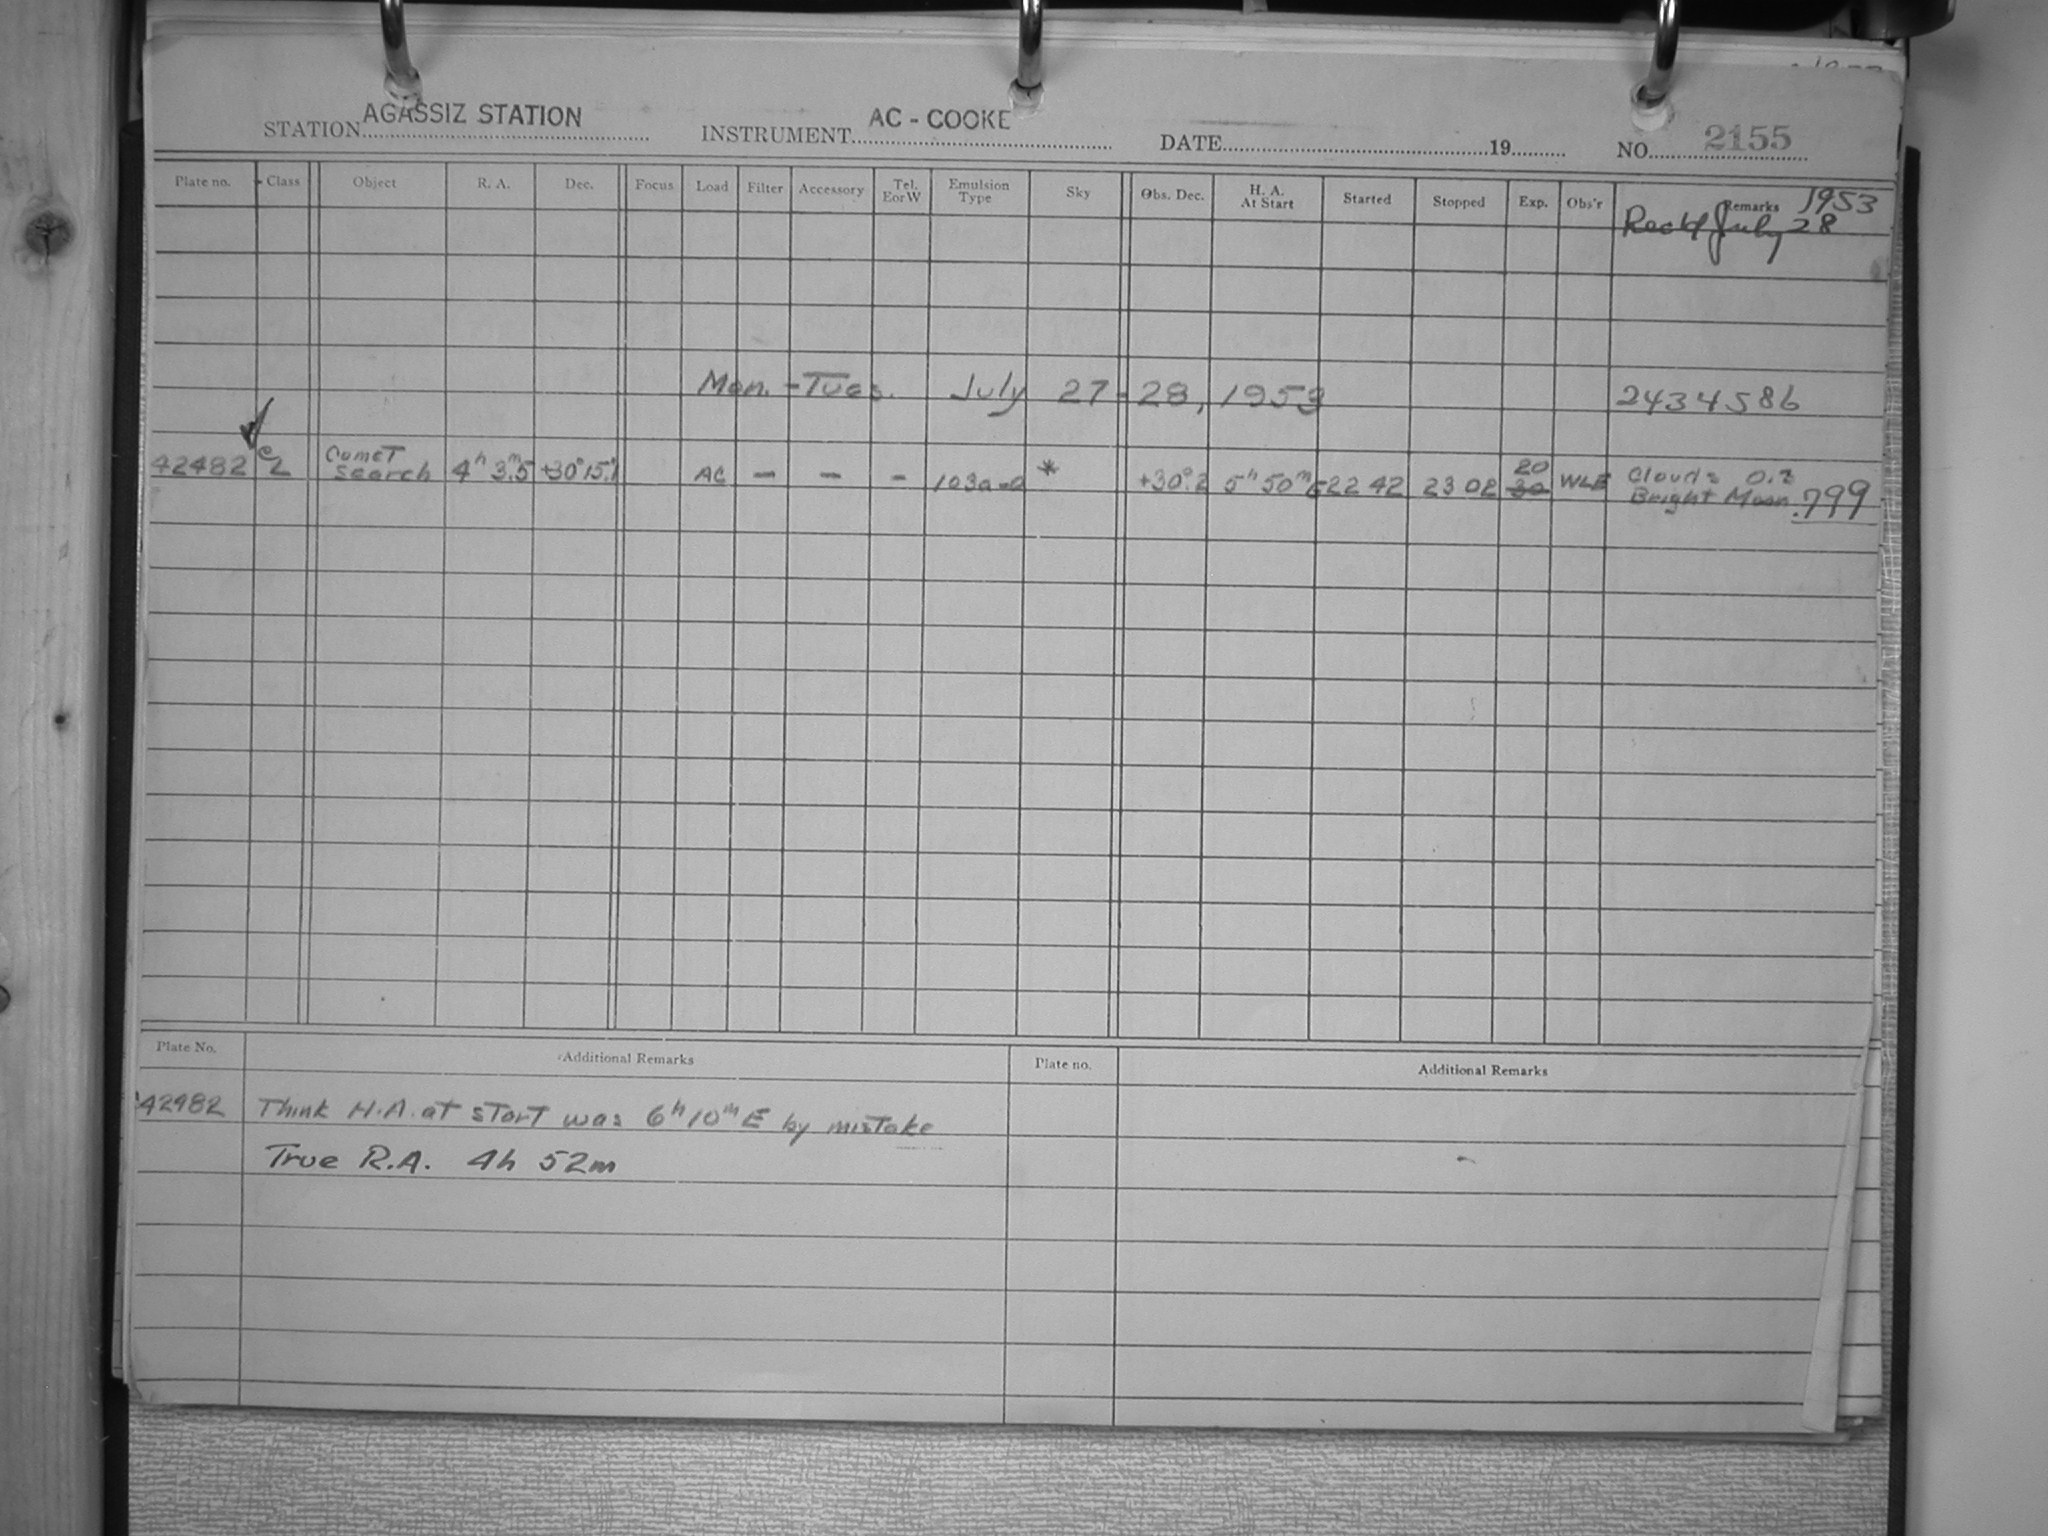 STATION AGASSIZ STATION INSTRUMENT AC - COOKE DATE 19 NO. 2155
Plate no. Class Object R. A. Dec. Focus Load Filter Accessory Tel. E or W Emulsion Type Sky Obs. Dec. H. A. At Start Started Stopped Exp. Obs'r Remarks 1953
Rec'd July 28
Mon. - Tues. July 27 - 28, 1953 2434586
42482 Comet search 4h 3m.5 +30°15' AC - - - 103a-O * +30°.2 5h 50m E 22 42 23 02 20 30 WLB Clouds 0.2
Bright Moon .799
Plate No. Additional Remarks Plate no. Additional Remarks
42482 Think H.A. at start was 6h 10m E by mistake
True R.A. 4h 52m